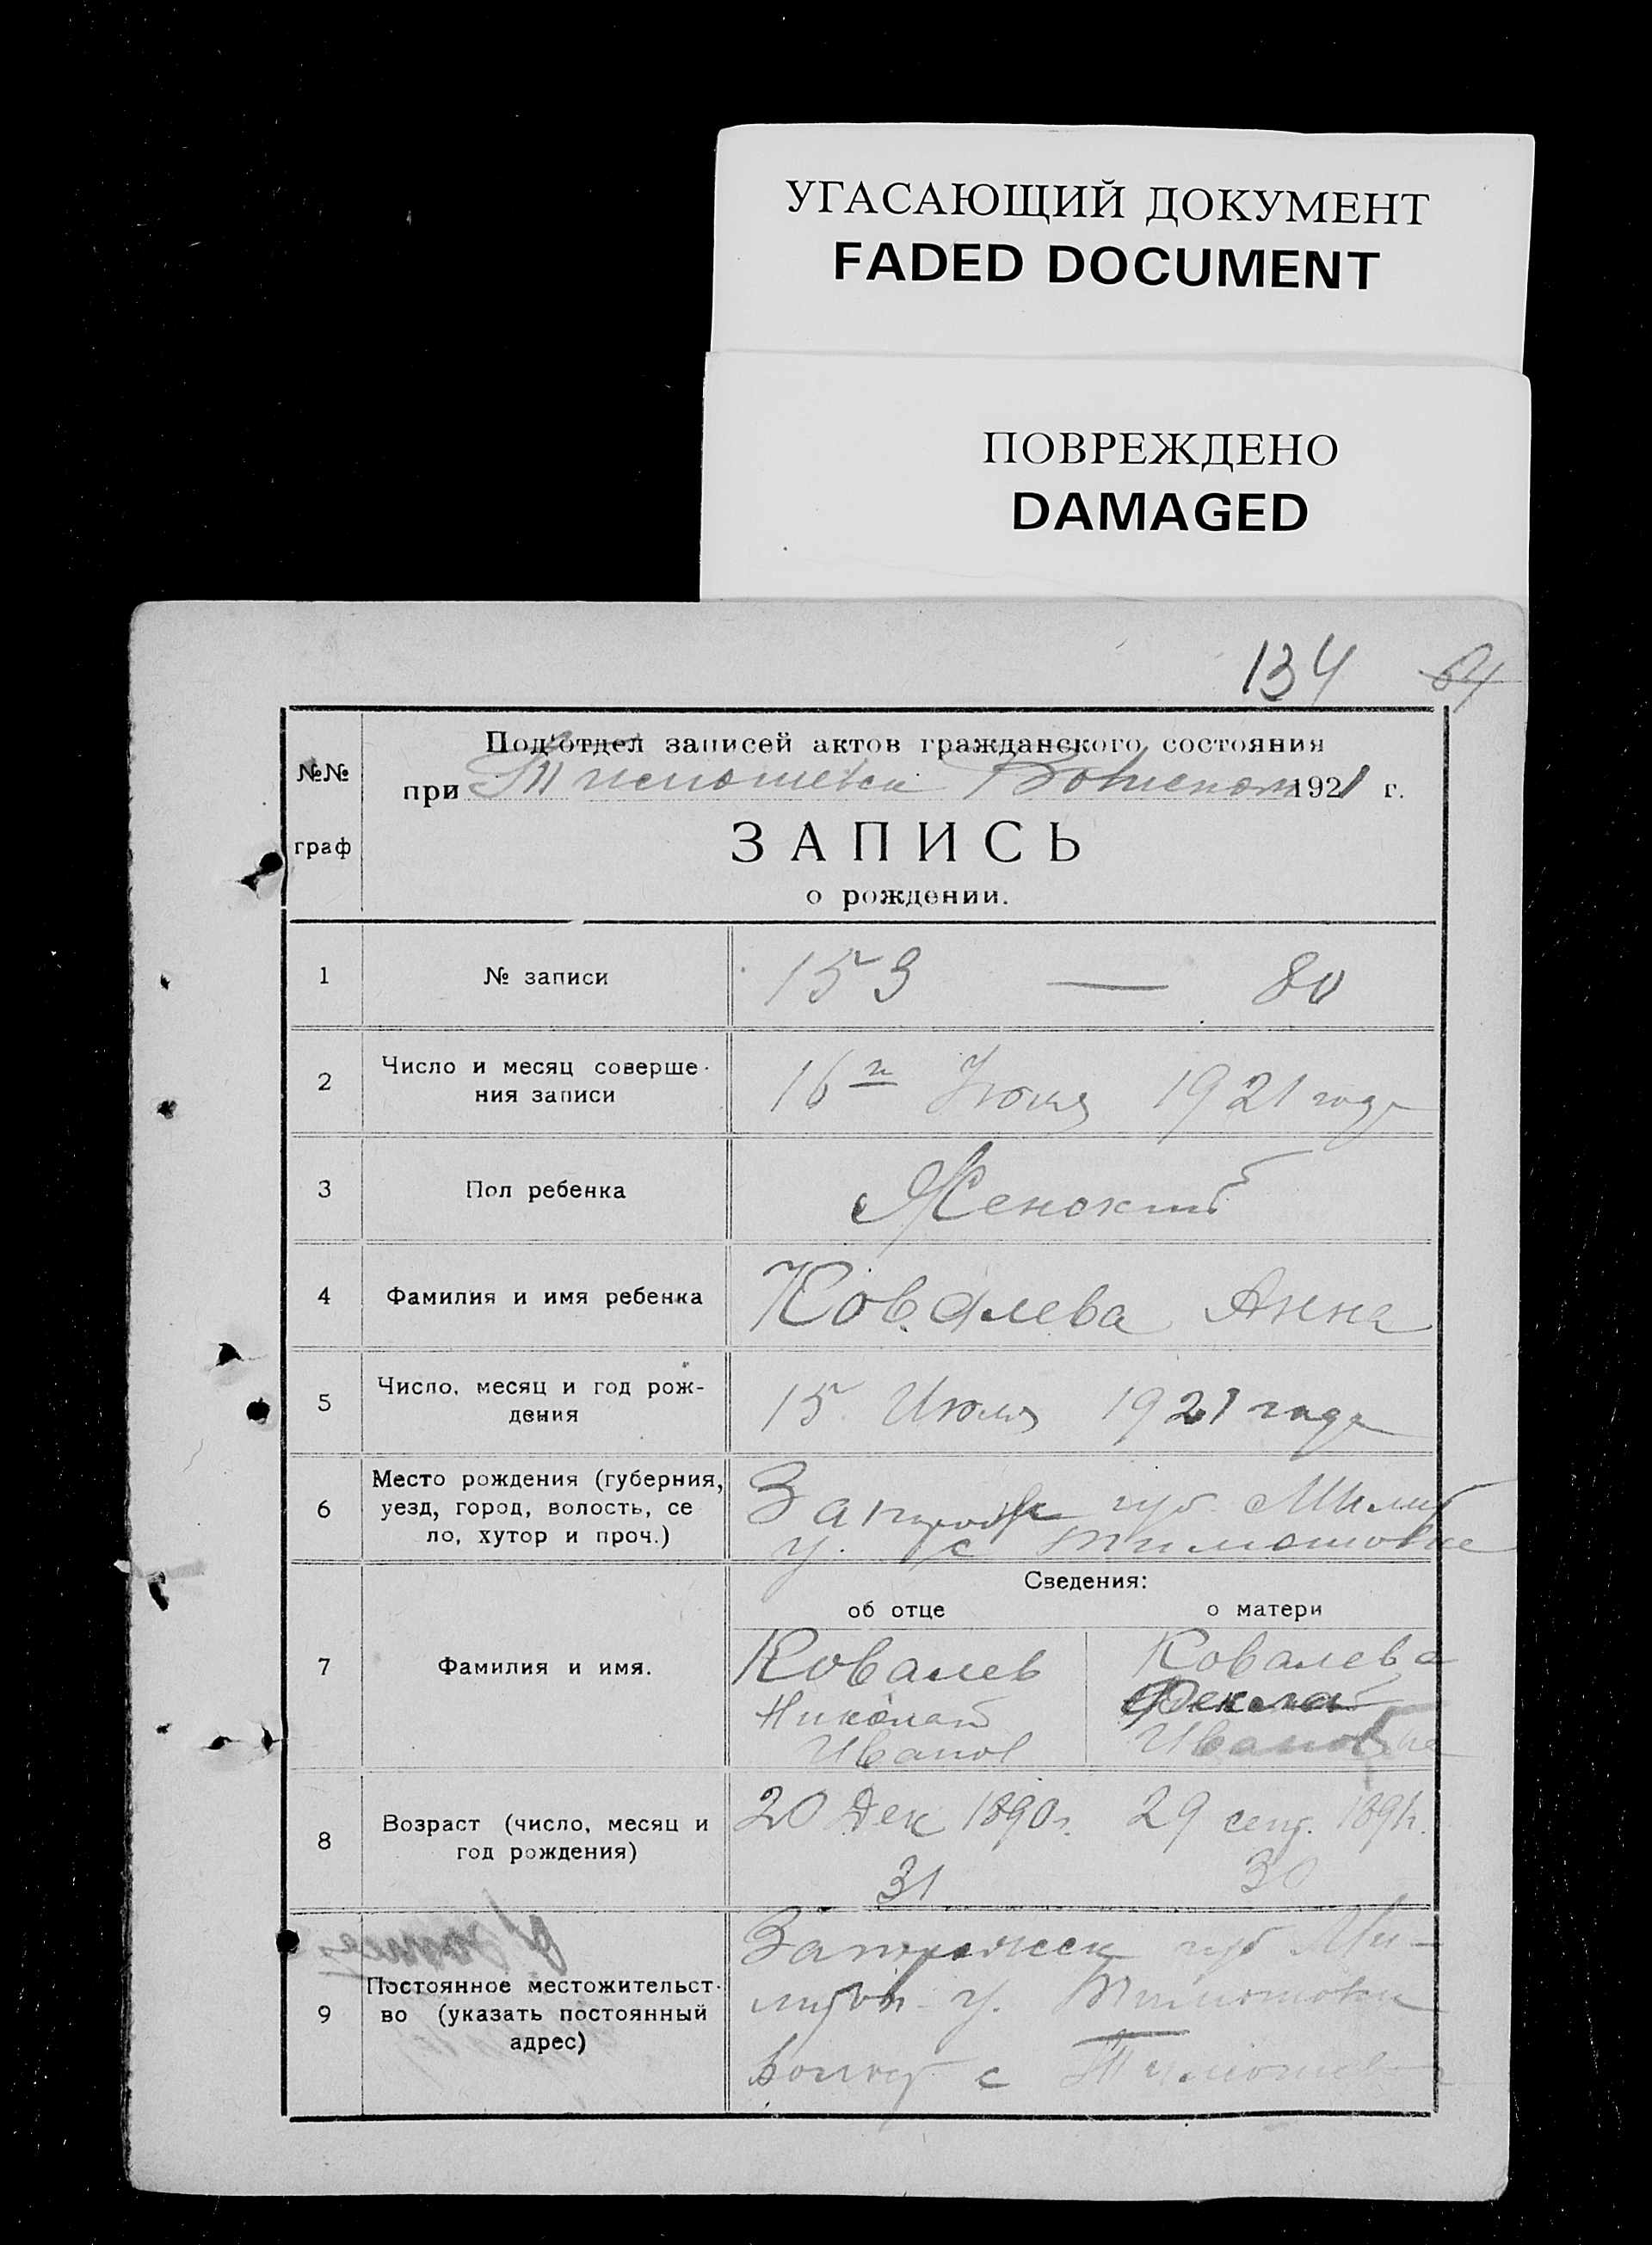 УГАСАЮЩИЙ ДОКУМЕНТ
FADED DOCUMENT
ПОВРЕЖДЕНО
DAMAGED
134 64
Под'отдел записей актов гражданского состояния
№№
при 1921 г.
граф
ЗАПИСЬ
о рождении.
1 № записи 153 — 80
2 Число и месяц соверше-
ния записи
16го 1921 года
3 Пол ребенка Женский
4 Фамилия и имя ребенка Ковалева Анна
5 Число, месяц и год рож-
дения
15 Июля 1921 года
6 Место рождения (губерния,
уезд, город, волость, се
ло, хутор и проч.)
губ. Мелит
у. с Тимошовке
Сведения:
об отце о матери
7 Фамилия и имя.
Ковалев Ковалева
Николай Фекла
Иванов
8 Возраст (число, месяц и
год рождения)
20 Дек 1890 г. 29 сент. 1891 г.
31 30
9 Постоянное местожительст-
во (указать постоянный
адрес)
губ Ме-
у.
с